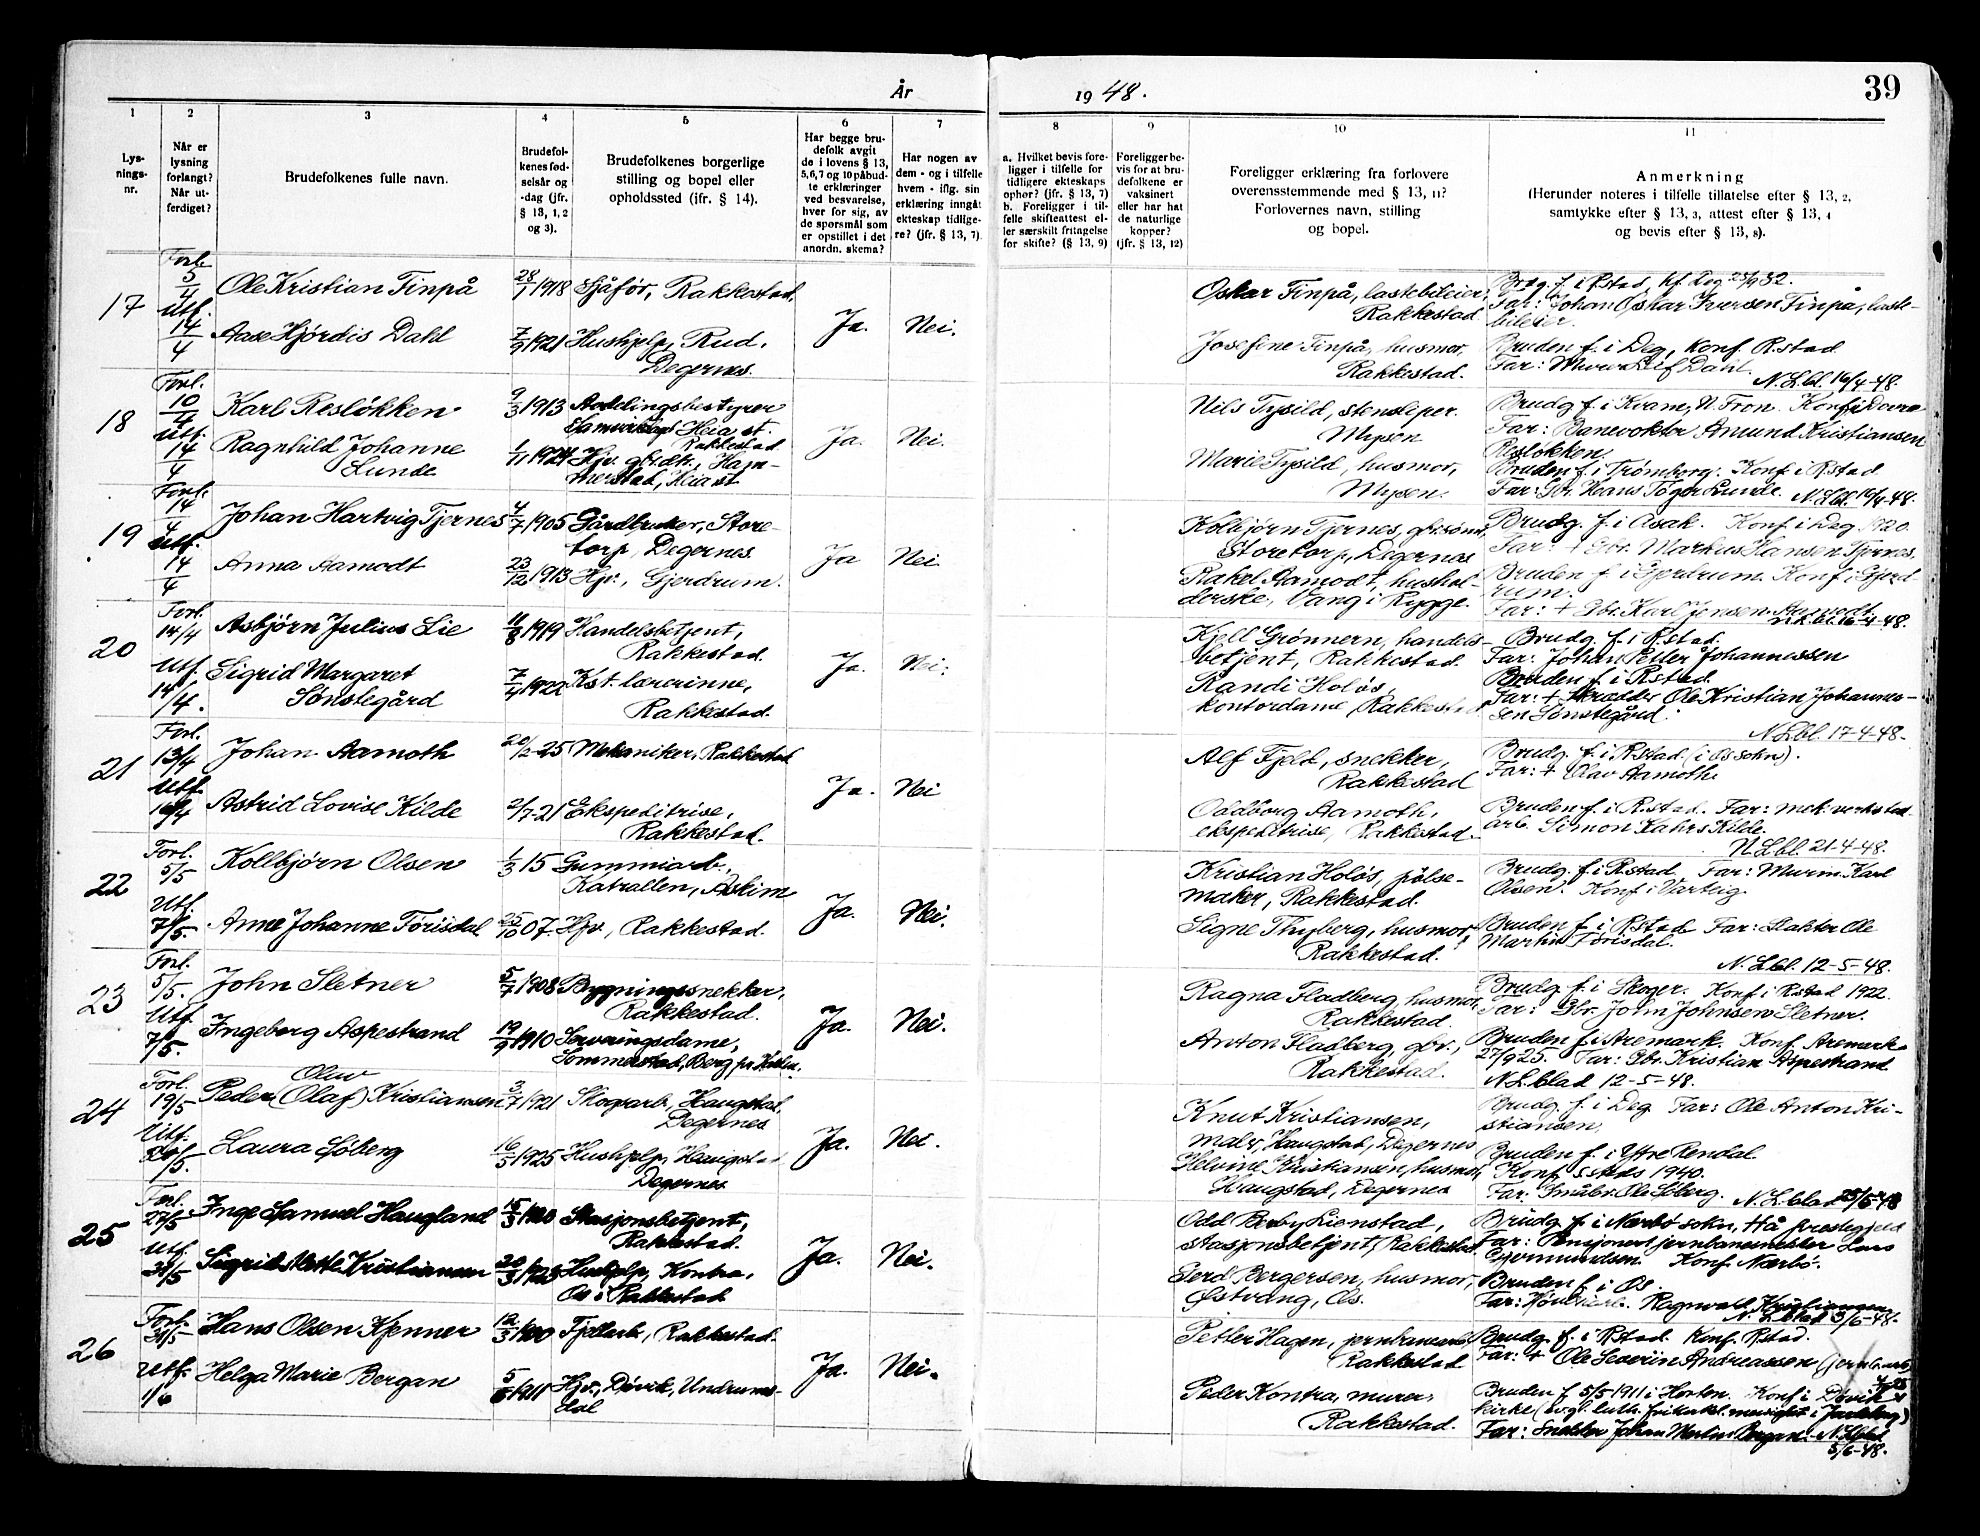 39
År 1948.
1 2 3 4 5 6 7 8 9 10 11
Lysningsnr.
Når er lysning forlangt? Når utferdiget?
Brudefolkenes fulle navn.
Brudefolkenes fødselsår og -dag (jfr. § 13, 1, 2 og 3).
Brudefolkenes borgerlige stilling og bopel eller opholdssted (ifr. § 14).
Har begge brudefolk avgit de i lovens § 13, 5, 6, 7 og 10 påbudte erklæringer ved besvarelse, hver for sig, av de spørsmål som er opstillet i det anordn. skema?
Har nogen av dem - og i tilfelle hvem - iflg. sin erklæring inngåt ekteskap tidligere? (jfr. § 13, 7).
a. Hvilket bevis foreligger i tilfelle for tidligere ekteskaps ophør? (jfr. § 13, 7)
b. Foreligger i tilfelle skifteattest eller særskilt fritagelse for skifte? (§ 13, 9)
Foreligger bevis for at brudefolkene er vaksinert eller har hat de naturlige kopper? (jfr. § 13, 12)
Foreligger erklæring fra forlovere overensstemmende med § 13, 11? Forlovernes navn, stilling og bopel.
Anmerkning
(Herunder noteres i tilfelle tillatelse efter § 13, 2, samtykke efter § 13, 3, attest efter § 13, 4 og bevis efter § 13, 8).
17
Forl. 5/4
Utf. 14/4
Ole Kristian Finpå
28/1 1918
Sjåfør, Rakkestad.
Aase Hjørdis Dahl
7/9 1921
Hushjelp, Rud,
Degernes.
Ja. Nei.
Oskar Finpå, lastebileier,
Rakkestad
Josefine Finpå, husmor,
Rakkestad.
Brdg. f. i R.stad, kf. Deg 25/9 32.
Far: Johan Oskar Iversen Finpå, laste-
bileier.
Bruden f. i Deg, konf. R.stad
Far: Murer Leif Dahl.
N. Lbl. 16/4-48.
18
Forl. 10/4
Utf. 14/4
Karl Resløkken
9/3 1913
Avdelingsbestyrer
Samvirkelaget Heia st.
Rakkestad
Ragnhild Johanne
Lunde
1/11 1924
Hjv. gbr.dt., Ham-
merstad, Heia st.
Ja. Nei.
Nils Tysild, stensliper.
Mysen
Marie Tysild, husmor,
Mysen.
Brudg. f. i Kvam, N. Fron. Konf. i Dovre
Far: Banevokter Amund Kristiansen
Resløkken.
Bruden f. i Trømborg. Konf. i R.stad
Far: Gbr. Hans Tøger Lunde. N. Lbl. 16/4-48.
19
Forl. 14/4
Utf. 14/4
Johan Hartvig Tjernes
4/7 1905
Gårdbruker, Store-
torp, Degernes
Anna Aamodt
23/12 1913
Hjv., Gjerdrum.
Ja Nei.
Kolbjørn Tjernes, gbr.sønn,
Storetorp, Degernes
Rakel Aamodt, hushol-
derske, Vang i Rygge.
Brudg. f. i Asak. Konf. i Deg. 1920.
Far: + Gbr. Markus Hansen Tjernes.
Bruden f. i Gjerdrum. Konf. i Gjerd-
rum.
Far: + Gbr. Karl Jensen Aamodt
N. Lbl. 16-4-48.
20
Forl. 14/4
Utf. 14/4.
Asbjørn Julius Lie
11/8 1919
Handelsbetjent,
Rakkestad.
Sigrid Margaret
Sønstegård
7/4 1922
Kst. lærerinne,
Rakkestad.
Ja. Nei.
Kjell Grønnern, handels-
betjent, Rakkestad.
Randi Holøs,
kontordame, Rakkestad
Brudg. f. i R.stad.
Far: Johan Petter Johannessen
Bruden f. i R.stad.
Far: + Skredder Ole Kristian Johannes-
sen Sønstegård.
N. Lbl. 17-4-48.
21
Forl. 13/4
Utf. 16/4
Johan Aamoth
20/2-25
Mekaniker, Rakkestad
Astrid Lovise Kilde
2/7-21
Ekspeditrise,
Rakkestad.
Ja. Nei
Alf Fjeld, snekker,
Rakkestad
Oddborg Aamoth,
ekspeditrise, Rakkestad.
Brudg. f. i R.stad (i Os sokn).
Far: + Olav Aamoth
Bruden f. i R.stad. Far: mek. verksted
arb. Simon Kahrs Kilde.
N. Lbl. 21-4-48.
22
Forl. 5/5
Utf. 7/5.
Kollbjørn Olsen
1/3 15
Gummiarb.,
Katrallen, Askim
Anne Johanne Tørisdal
25/10 07.
Hjv., Rakkestad.
Ja. Nei.
Kristian Holøs, pølse-
maker, Rakkestad.
Signe Thyberg, husmor,
Rakkestad.
Brudg. f. i R.stad Far: Murm. Karl
Olsen. Konf. i Varteig.
Bruden f. i R.stad Far: Slakter Ole
Martin Tørisdal.
N. Lbl. 12-5-48.
23
Forl. 5/5.
Utf. 7/5.
John Sletner
5/7 1908
Bygningssnekker,
Rakkestad.
Ingeborg Aspestrand
19/9 1910
Serveringsdame,
Sommerstad, Berg pr. Halden.
Ja. Nei.
Ragna Fladberg, husmor,
Rakkestad
Anton Fladberg, gbr.,
Rakkestad.
Brudg. f. i Skoger. Konf. i R.stad 1922.
Far: Gbr. John Johnsen Sletner.
Bruden f. i Aremark. Konf. Aremark
27/9 25. Far: Gbr. Kristian Aspestrand
N. L. blad 12-5-48.
24
Forl. 19/5
Utf. 20/5.
Olav
Peder (Olaf) Kristiansen
3/7 1921
Skogsarb., Haugstad,
Degernes
Laura Søberg
16/5 1925
Hushjelp, Haugstad
Degernes
Ja. Nei.
Knut Kristiansen,
maler, Haugstad, Degernes
Helvine Kristiansen, husmor,
Haugstad, Degernes
Brudg. f. i Deg Far: Ole Anton Kri-
stiansen.
Bruden f. i Ytre Rendal
Konf. s. steds 1940.
Far: Småbr. Ole Søberg. N. L. blad 25/5-48
25
Forl. 27/5
Utf. 31/5
Inge Samuel Haugland
15/3 1920
Stasjonsbetjent,
Rakkestad.
Sigrid Mette Kristiansen
20/3 1923
Hushjelp, Kontra,
Os i Rakkestad
Ja. Nei.
Odd Berby Lienstad,
stasjonsbetjent, Rakkestad.
Gerd Bergersen, husmor,
Østvang, Os.
Brudg. f. i Nærbø sokn, Hå prestegjeld
Far: Pensjonert jernbanemester Lars
Gjermundsen. Konf. Nærbø.
Bruden f. i Os
Far: Ragnvald Kristiansen
N. L. blad 3/6-48.
26
Forl. 31/5
Utf. 1/6
Hans Olsen Kjenner
12/3 1900
Fjellarb., Rakkestad.
Helga Marie Bergan
5/5 1911
Hjv., Døvik, Undrums-
dal
Ja. Nei.
Petter Hagen, jernbanearb.,
Rakkestad
Peder Kontra, murer,
Rakkestad.
Brudg. f. i R.stad. Konf. R.stad.
Far: + Ole Severin Andreassen (jernb.arb.)
Bruden f. 5/5 1911 i Horten. Konf. i Døvik
kirke (evgl. luth. frikirkel. menighet i Jarlsberg)
Far: Snekker Johan Martin Bergan. N. L. blad
5/6-48.